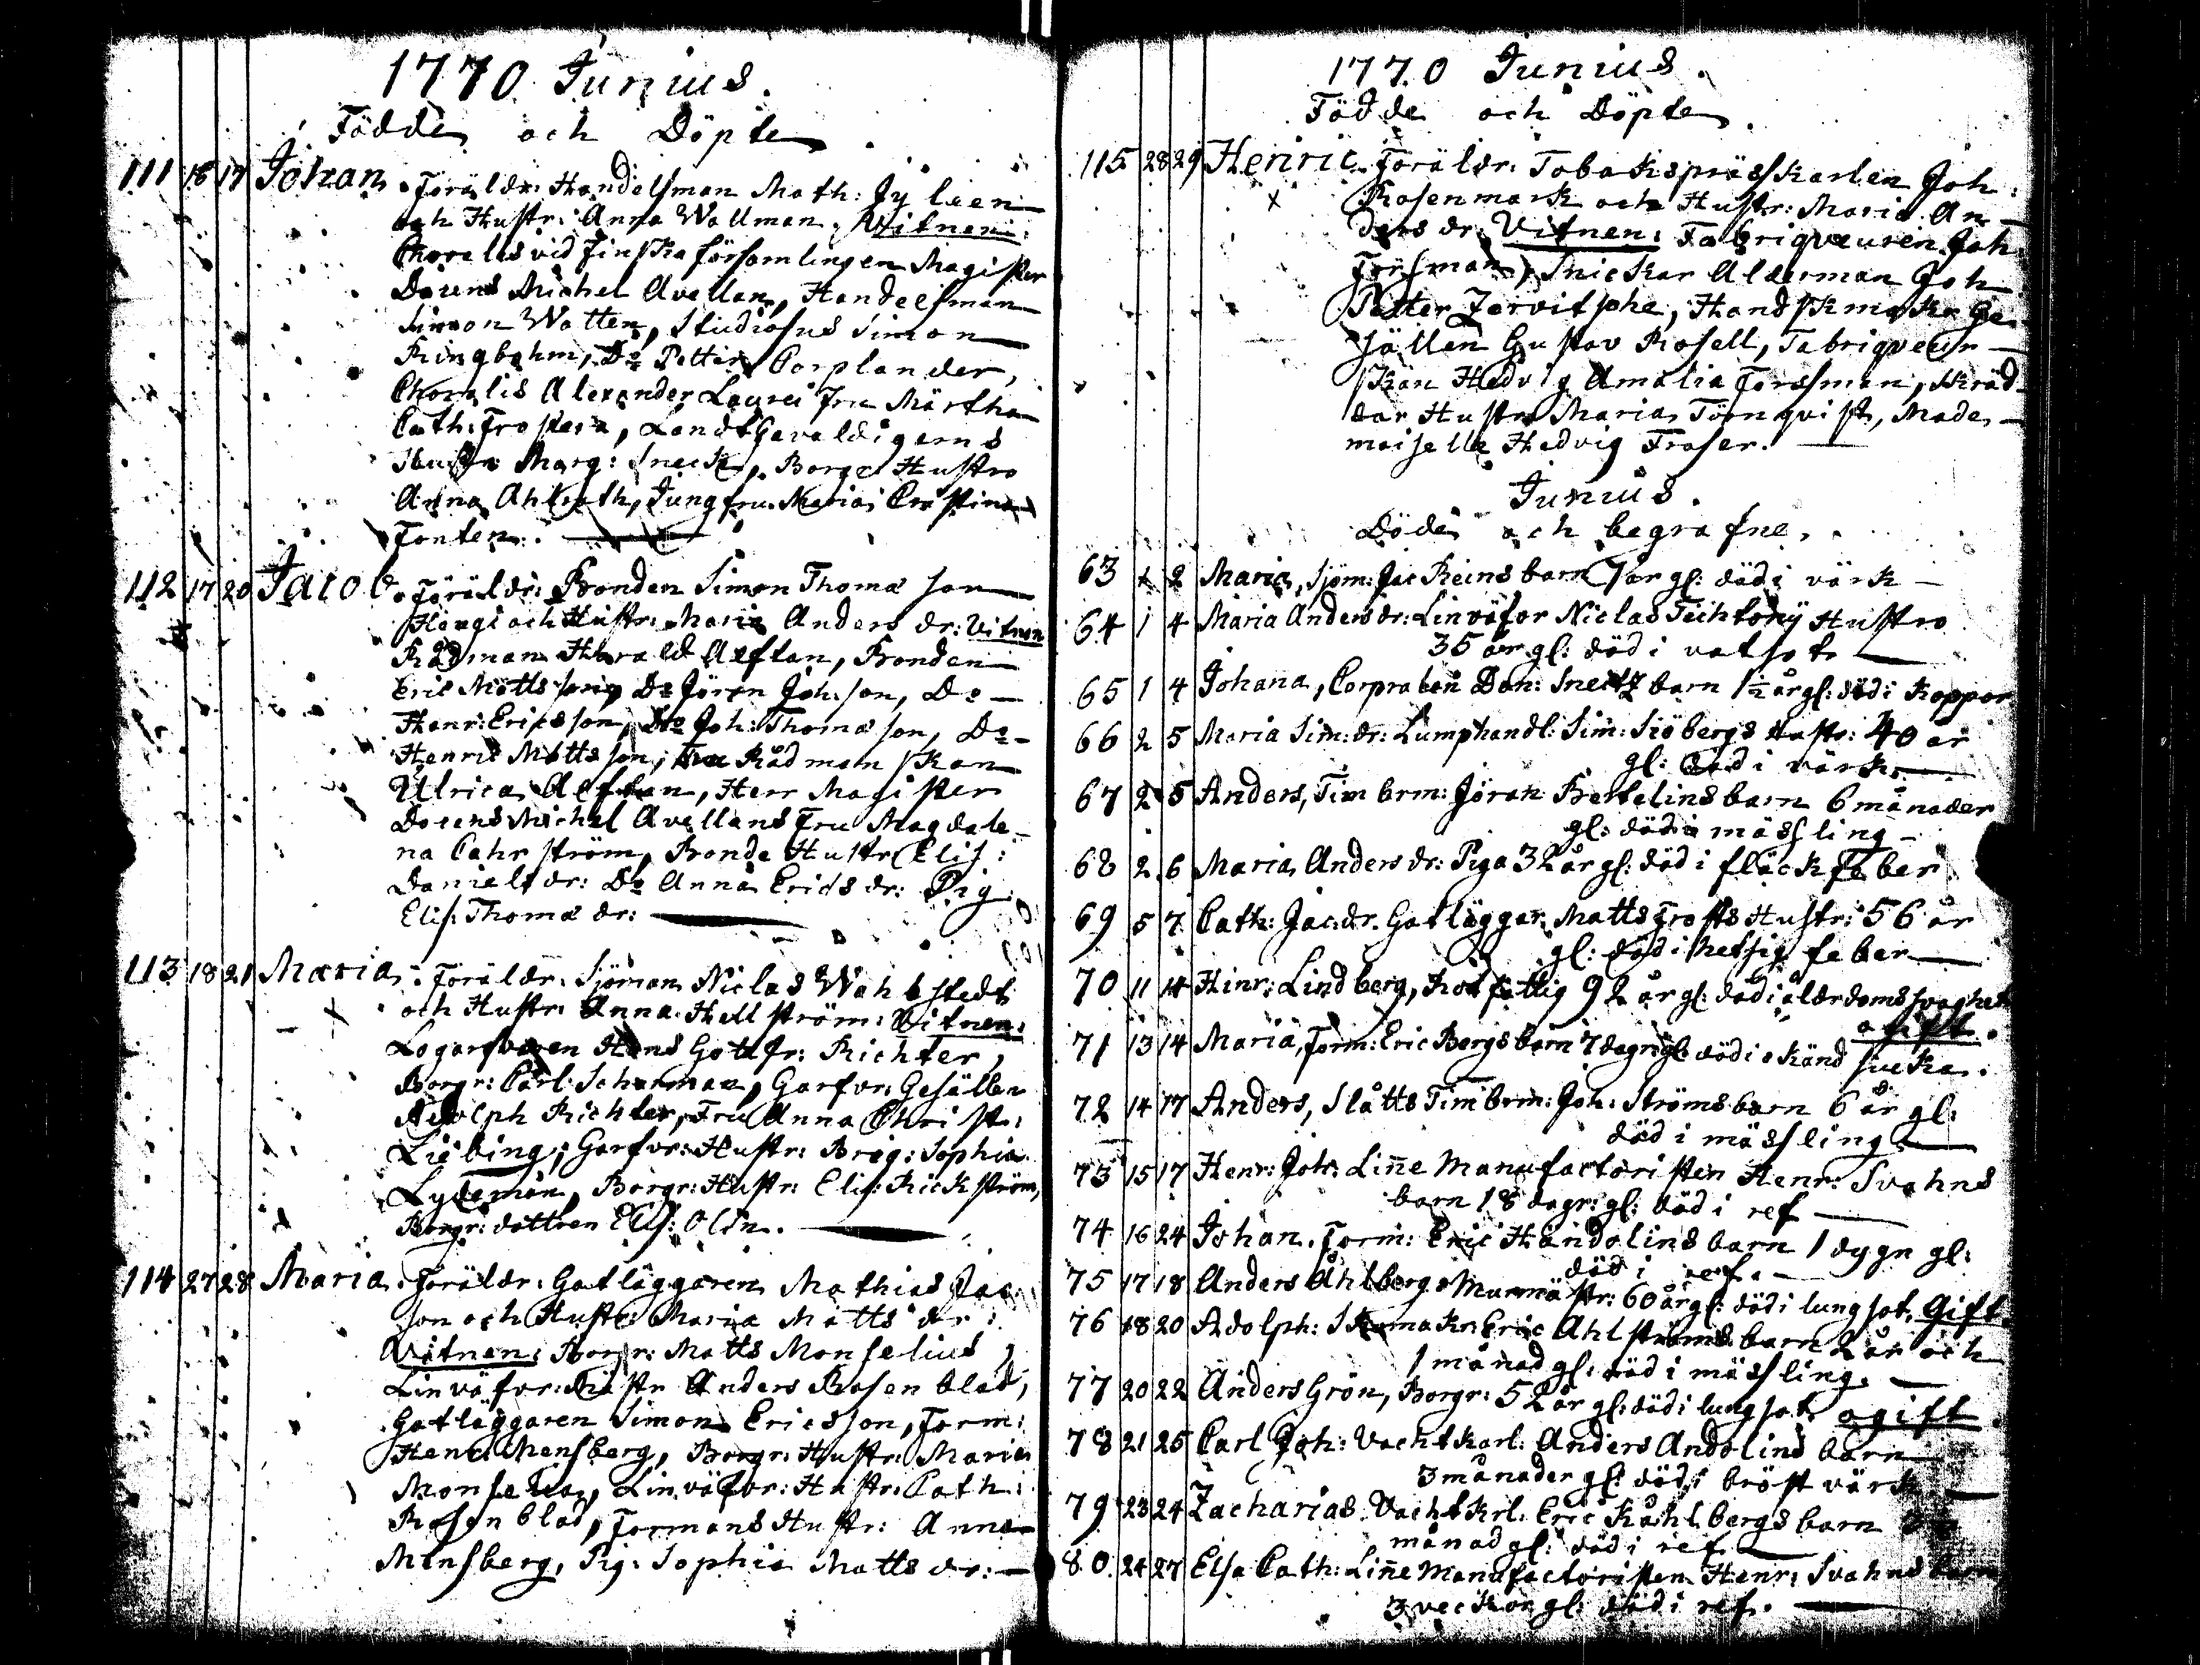 1770 Junius.
Födde och Döpte
111 18 17 Johan. Föräldr: Handelsman Math: Jyleen
och Hustr: Anna Wallman. Vitnen:
Choralis vid Finska församlingen Magister
Docens Michel Avellan, Handelsman
Simon Watten, Studiosus Simon
Ringbohm, Do Petter Porplander,
Choralis Alexander Laurei Fru Märtha
Cath: Frostera, Landt Gevaldigerns
Hustr Marg: Sneck, Borgr Hustro
Anna Ahlroth, Jungfru Maria Christina
Fonten.
112 17 20 Jacob. Föräldr: Bonden Simon Thomæ son
Haugi och Hustr: Maria Anders dr: Vitnen
Rådman Harald Alftan, Bonden
Eric Matts son, Do Jören Joh: son, Do
Henr: Ericsson, Do Joh: Thomæ son, Do
Henric Matts son, Fru Rådman skan
Ulrica Alftan, Herr Magister
Docens Michel Avellans Fru Magdale-
na Cahrström, Bonde Hustr Elis:
Daniels dr: Do Anna Erics dr: Pig
Elis: Thomæ dr:
113 18 21 Maria. Föräldr: Sjöman Niclas Wahlstedt
och Hustr: Anna Hellström: Vitnen:
Logarfvaren Hans Gottfr: Richter,
Borgr: Carl Scharman, Garfvr: Gesällen
Adolph Richter, Fru Anna Christ:
Liebing, Garfvr: Hustr: Brig: Sophia
Lydeman, Borgr: Hustr: Elis: Rickström,
Borgr: dottren Elis: Olin.
114 27 28 Maria. Föräldr: Gatläggaren Mathias Jac
son och Hustr: Maria Matts dr:
Vitnen: Borgr: Matts Monselius,
Linväfvr: Mästr Anders Rosenblad,
Gatläggaren Simon Ericsson, Form:
Henr: Mensberg, Borgr: Hustr: Maria
Monselia, Linväfvr: Hustr: Cath:
Rosenblad, Formans Hustr: Anna
Mensberg, Pig: Sophia Matts dr:
1770 Junius.
Födde och Döpte
115 28 29 Henric. Föräldr: Tobaksprässkarlen Joh:
Rosenmark och Hustr: Maria An-
ders dr. Vitnen: Fabriqveuren Joh
Forsman, Snickar Alderman Joh
Petter Zervitsphe, Handskmakr Ge-
sällen Gustav Rosell, Fabriqveur-
skan Hedvig Amalia Forsman, Skräd-
dar Hustr Maria Törnqvist, Made-
moiselle Hedvig Froser.
Junius.
Döde och begrafne.
63 1 2 Maria, Sjöm: Jac Reins barn 7 år gl: död i värk
64 1 4 Maria Anders dr: Linväfvr Niclas Techtony Hustro
35 år gl: död i vatsot
65 1 4 Johana, Corpralen Dan: Snecks barn 1½ år gl: död i Koppor
66 2 5 Maria Sim: dr: Lumphandl: Sim: Siöbergs Hustr: 40 år
gl: död i värk.
67 2 5 Anders, Timbrm: Jöran Bertelins barn 6 månader
gl: död i mässling
68 2 6 Maria Anders dr: Piga 32 år gl: död i fläckfeber
69 5 7 Cath: Jac: dr. Gatläggar Matts Frosts Hustr: 56 år
gl: död i hetsig feber
70 11 14 Hinr: Lindberg, Rotfattig 92 år gl: död i ålderdomssvaghet
ogift.
71 13 14 Maria, Form: Eric Borgs barn 7 dagr gl: död i okänd siuka.
72 14 17 Anders, Slåtts Timbrm: Joh: Ströms barn 6 år gl:
död i mässling
73 15 17 Henr: Joh: Linne Manufactoristen Henr: Svahns
barn 18 dagr: gl: död i ref
74 16 24 Johan, Form: Eric Händolins barn 1 dygn gl:
död i ref.
75 17 18 Anders Åhlberg Murmästr: 60 år gl: död i lungsot. Gift.
76 18 20 Adolph: Skomakr: Eric Ahlströms barn 2 år och
1 månad gl: död i mässling.
77 20 22 Anders Grön, Borgr: 52 år gl: död i lungsot. ogift
78 21 25 Carl Joh: Vachtkarl: Anders Andolins barn
3 månader gl: död i bröst värk
79 23 24 Zacharias Vachtkrl: Eric Kåhlbergs barn
månad gl: död i ref
80. 24 27 Elsa Cath: Linne Manufactoristen Henr: Svahns barn
3 veckor gl: död i ref.